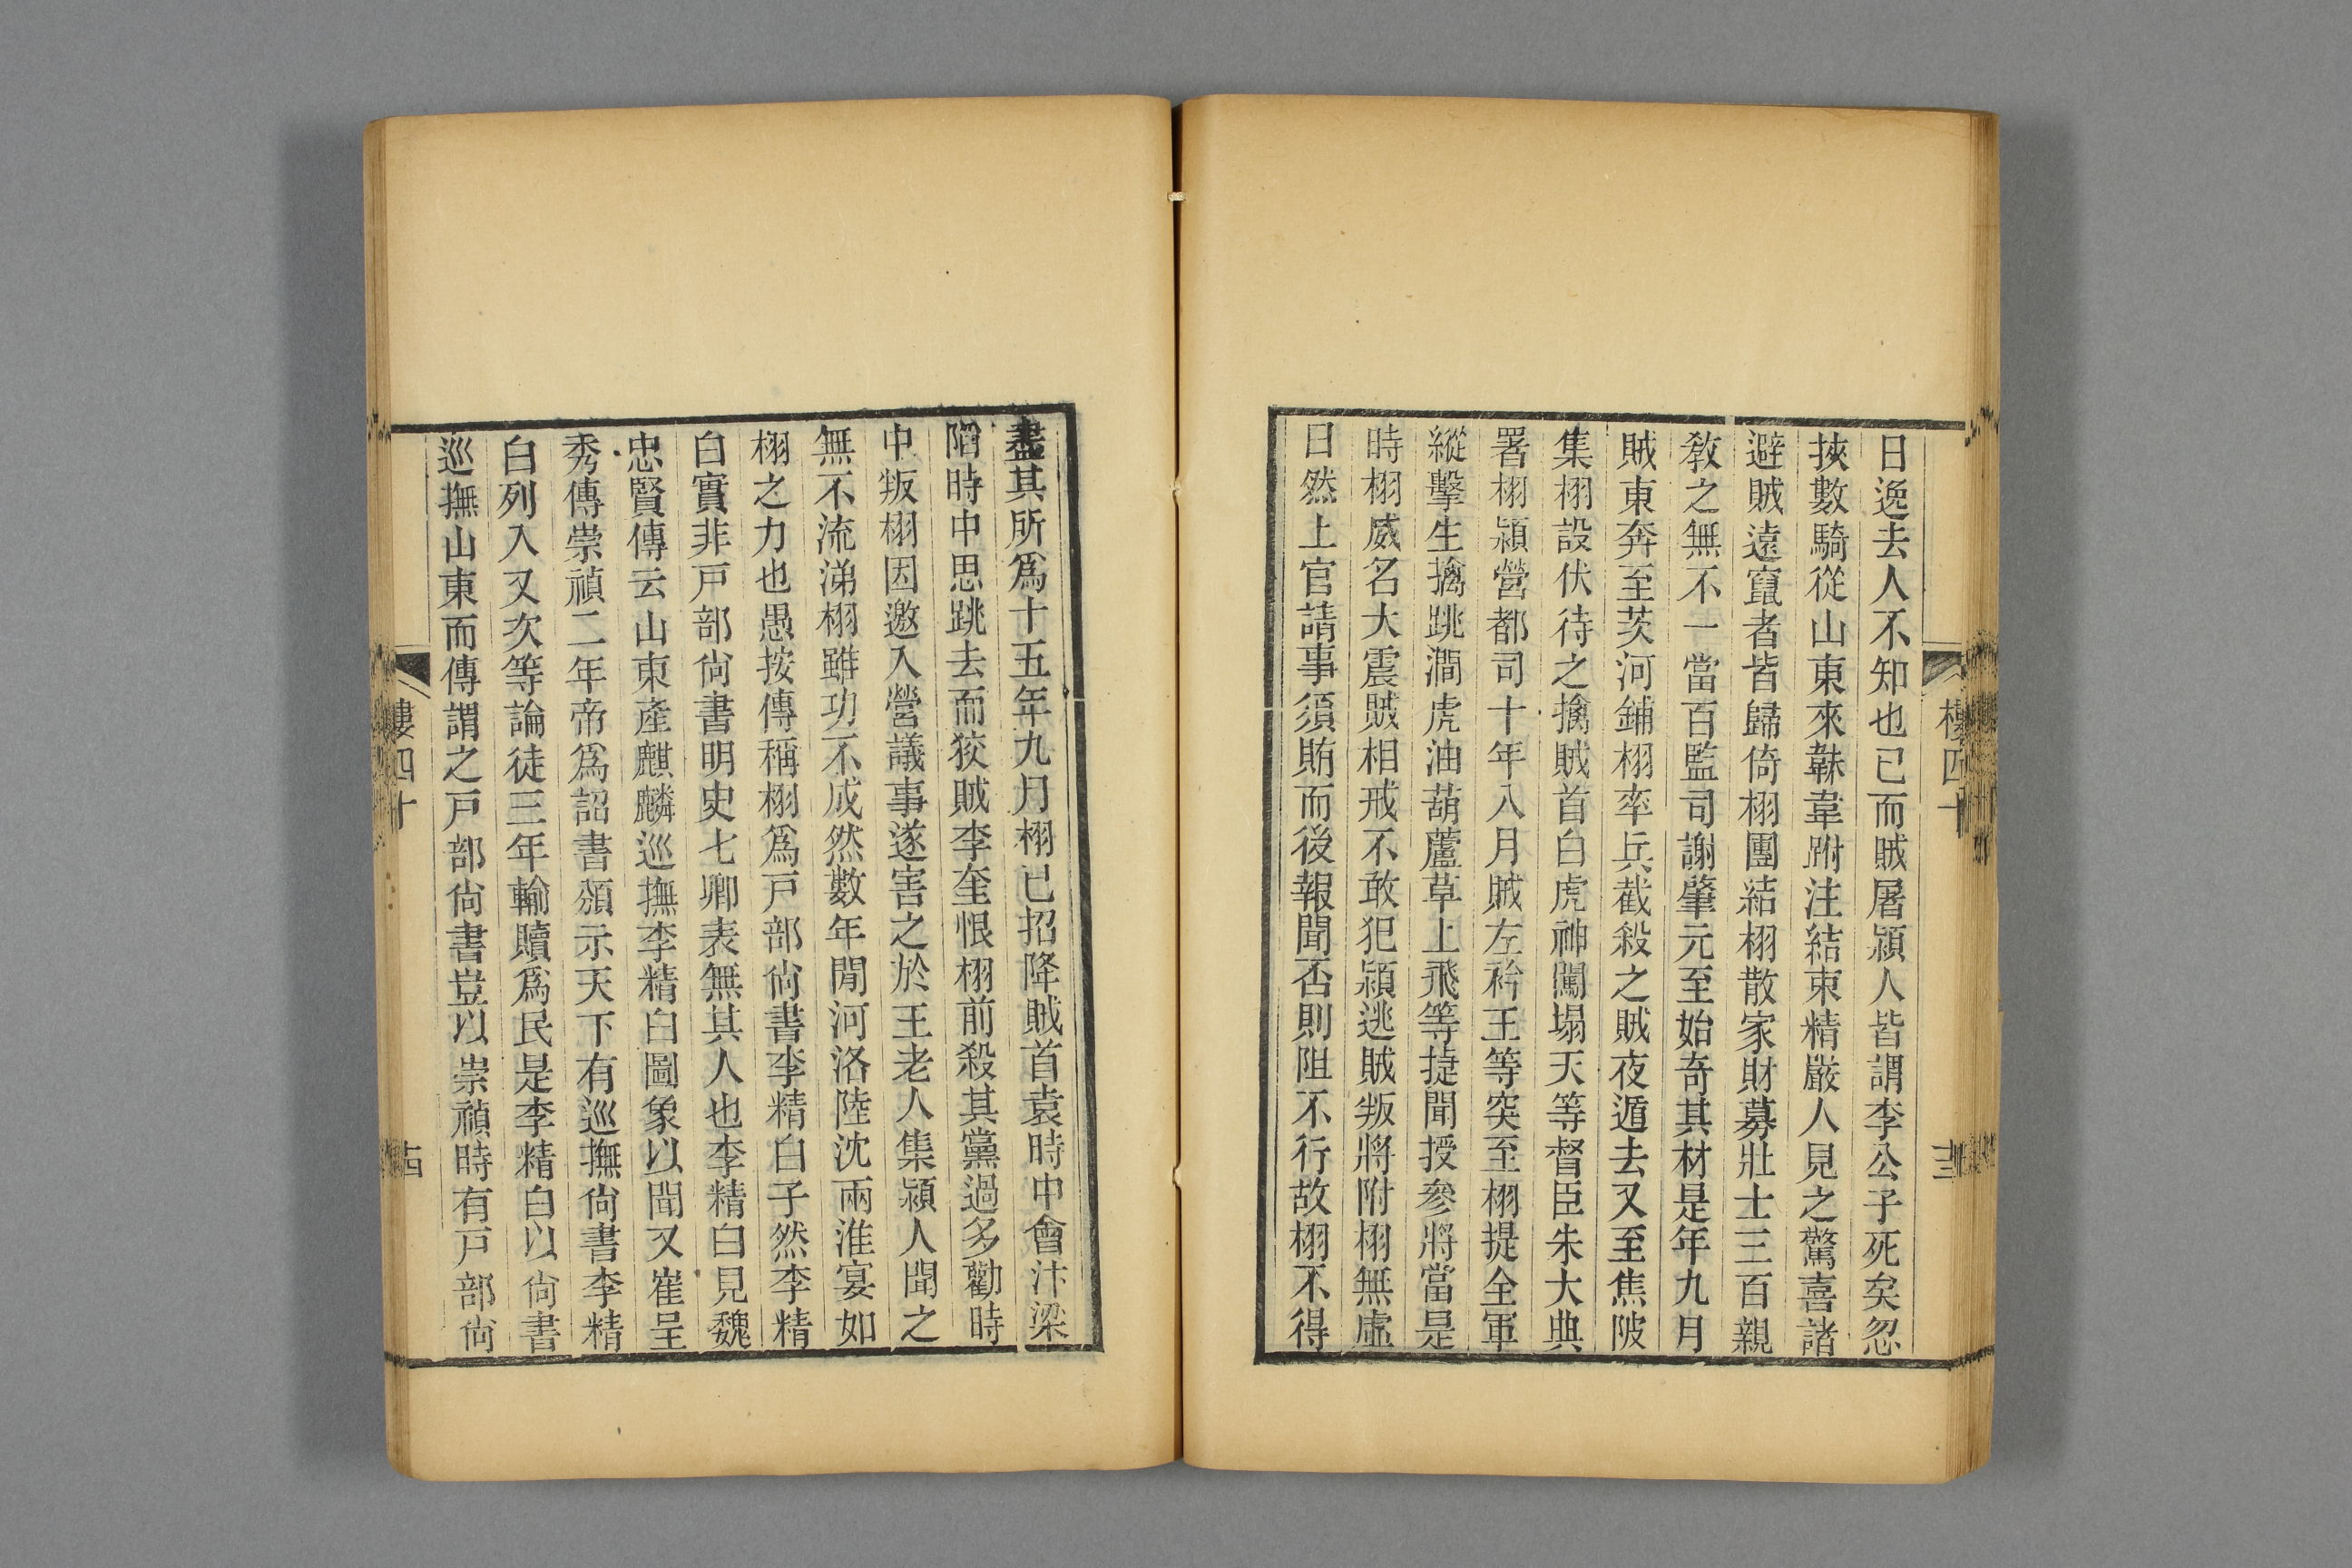 日逸去人不知也已而賊屠潁人皆謂李公子死矣忽
挾數騎從山東來韎韋跗注結束精嚴人見之驚喜諸
避賊遠竄者皆歸倚栩團結栩散家財募壯士三百親
敎之無不一當百監司謝肇元至始奇其材是年九月
賊東奔至茨河鋪栩率兵截殺之賊夜遁去又至焦陂
集栩設伏待之擒賊首白虎神闖塌天等督臣朱大典
署栩潁營都司十年八月賊左衿王等突至栩提全軍
縱擊生擒跳澗虎油葫蘆草上飛等捷聞授參將當是
時栩威名大震賊相戒不敢犯潁逃賊叛將附栩無虛
日然上官請事須賄而後報聞否則阻不行故栩不得
盡其所爲十五年九月栩已招降賊首袁時中會汴梁
陷時中思跳去而狡賊李奎恨栩前殺其黨過多勸時
中叛栩因邀入營議事遂害之於王老人集潁人聞之
無不流涕栩雖功不成然數年閒河洛陸沈兩淮宴如
栩之力也愚按傳稱栩爲戸部尙書李精白子然李精
白實非戸部尙書明史七卿表無其人也李精白見魏
忠賢傳云山東產麒麟巡撫李精白圖象以聞又崔呈
秀傳崇禎二年帝爲詔書頒示天下有巡撫尙書李精
白列入又次等論徒三年輸贖爲民是李精白以尙書
巡撫山東而傳謂之戸部尙書豈以崇禎時有戸部尙
樓四十
十三
樓四十
十四